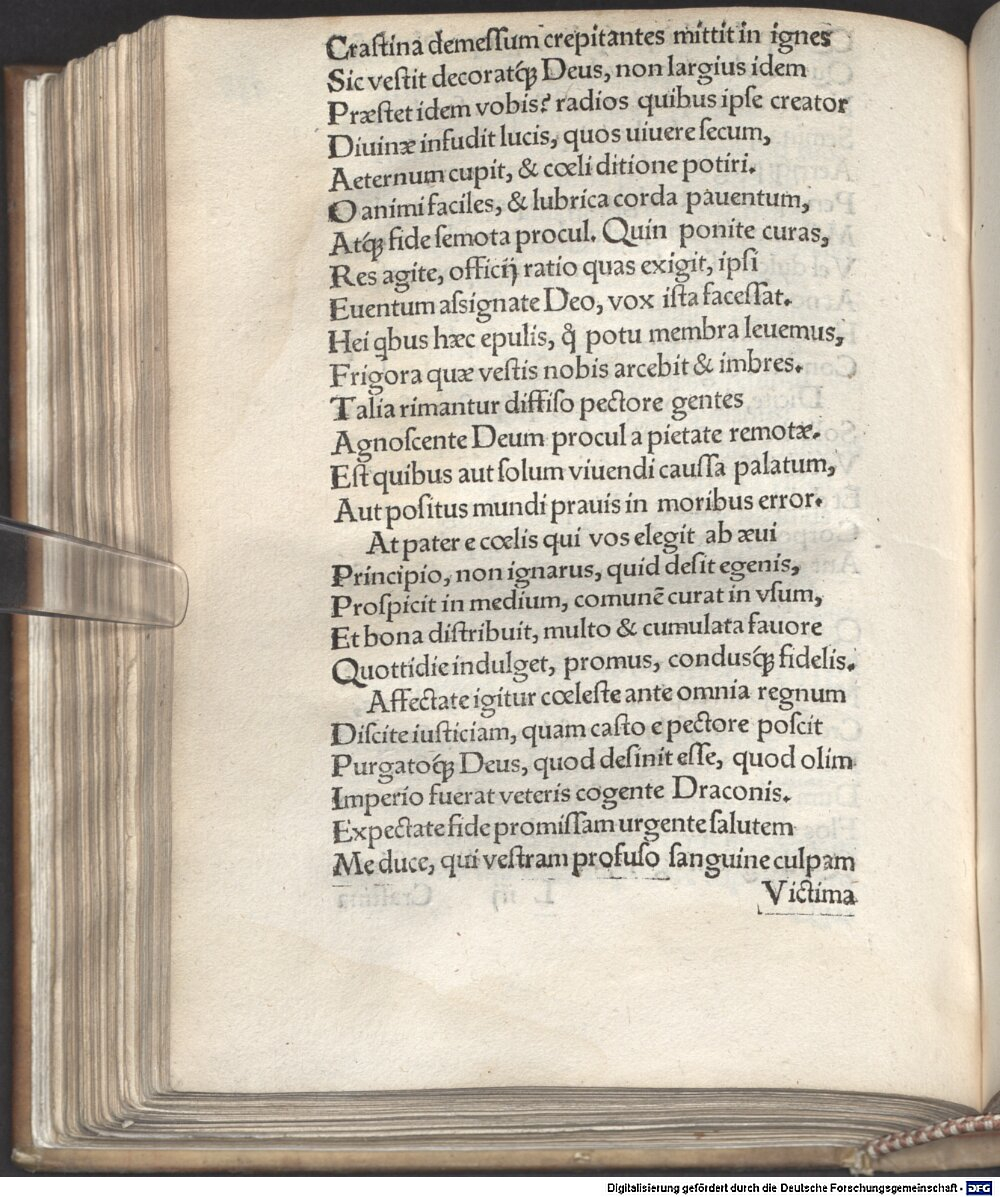 Craſtina demeſſum crepitantes mittit in ignes
Sic veſtit decoratq́ꝫ Deus, non largius idem
Præſtet idem vobis? radios quibus ipſe creator
Diuinæ infudit lucis, quos uiuere ſecum,
Aeternum cupit, & cœli ditione potiri.
O animi faciles, & lubrica corda pauentum,
Atq́ꝫ fide ſemota procul. Quin ponite curas,
Res agite, officij ratio quas exigit, ipſi
Euentum aſsignate Deo, vox iſta faceſſat.
Hei qbus hæc epulis, q̊ potu membra leuemus,
Frigora quæ veſtis nobis arcebit & imbres.
Talia rimantur diffiſo pectore gentes
Agnoſcente Deum procul a pietate remotæ.
Eſt quibus aut ſolum viuendi cauſſa palatum,
Aut poſitus mundi prauis in moribus error.
At pater e cœlis qui vos elegit ab æui
Principio, non ignarus, quid deſit egenis,
Proſpicit in medium, comunē curat in vſum,
Et bona diſtribuit, multo & cumulata fauore
Quottidie indulget, promus, condusq́ꝫ fidelis.
Affectate igitur cœleſte ante omnia regnum
Diſcite iuſticiam, quam caſto e pectore poſcit
Purgatoq́ꝫ Deus, quod deſinit eſſe, quod olim
Imperio fuerat veteris cogente Draconis.
Expectate fide promiſſam urgente ſalutem
Me duce, qui veſtram profuſo ſanguine culpam
Victima
Digitalisierung gefördert durch die Deutsche Forschungsgemeinschaft - DFG